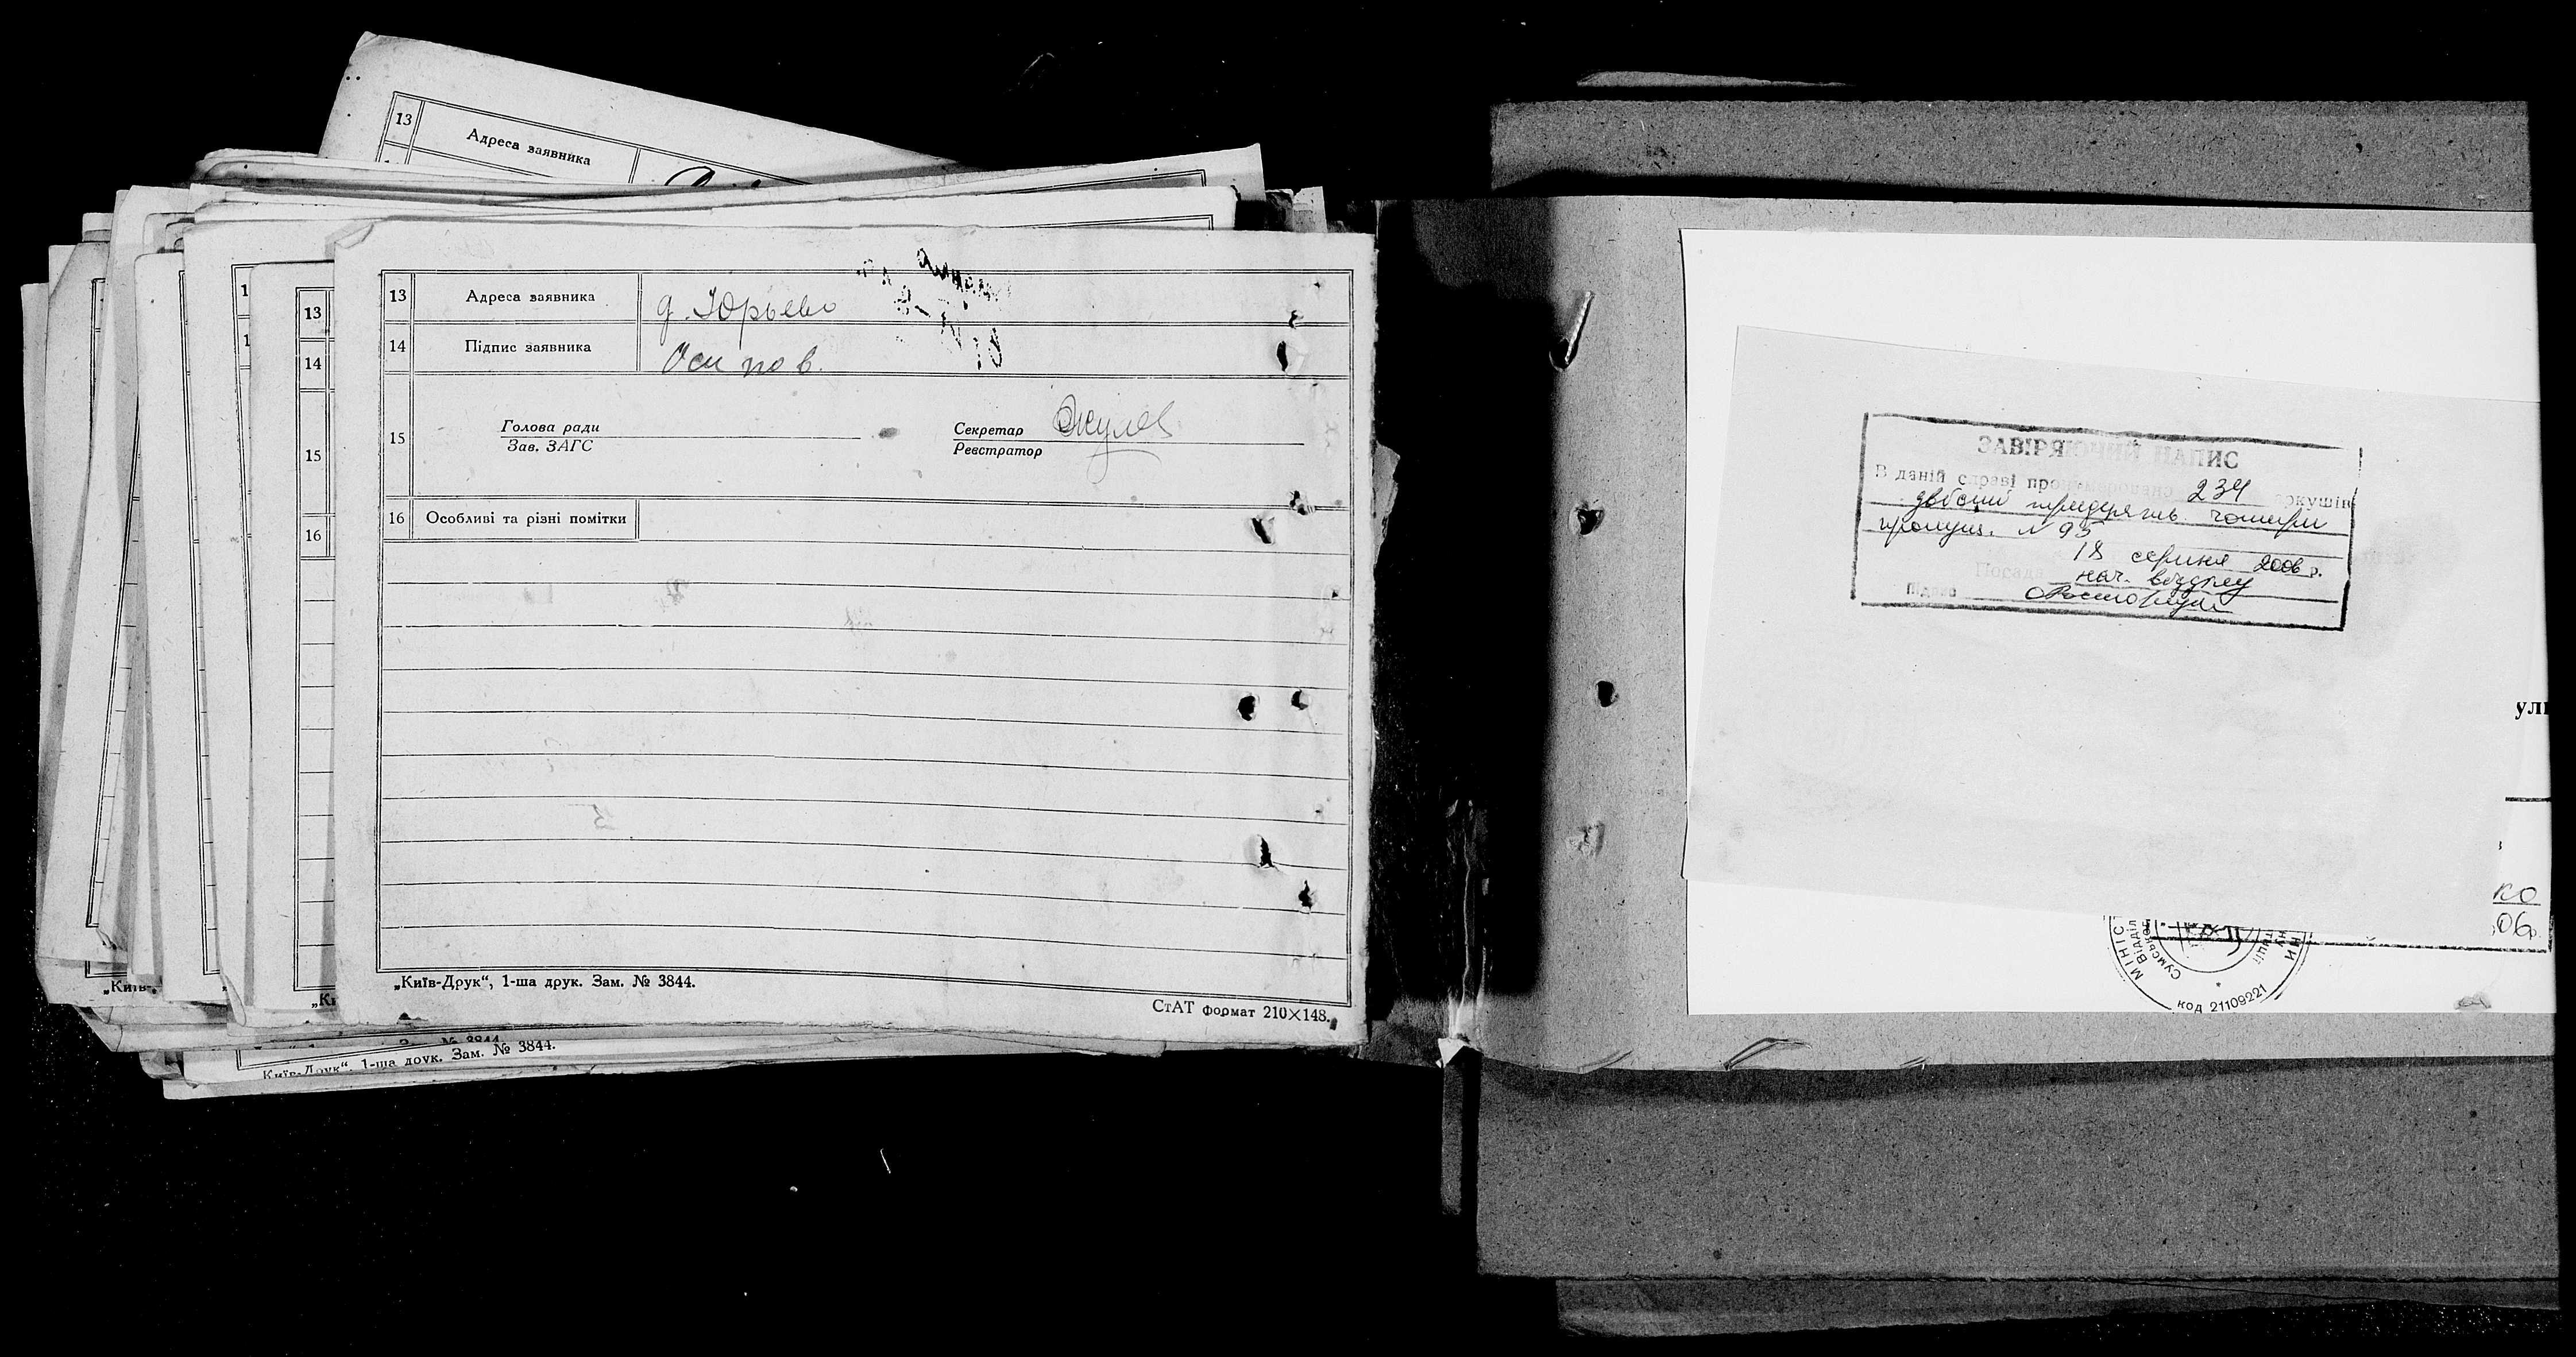 13 Адреса заявника
13 Адреса заявника д. Юрьево
14 Підпис заявника Осипов.
15 Голова ради Секретар
Зав. ЗАГС Реєстратор
16 Особливі та різні помітки
13
14
15
16
„Київ-Друк“, 1-ша друк. Зам. № 3844.
СтАТ формат 210×148.
„Київ-
„Ки
Київ-Друк“, 1-ша друк. Зам. № 3844.
ЗАВІРЯЮЧИЙ НАПИС
В даній справі пронумеровано 234 аркушів
двісті тридцять чотири
пропущ. № 95
18 серпня 2006 р.
Посада нач. відділу
Підпис
ули
ко
06р.
МІНІС
код 21109221